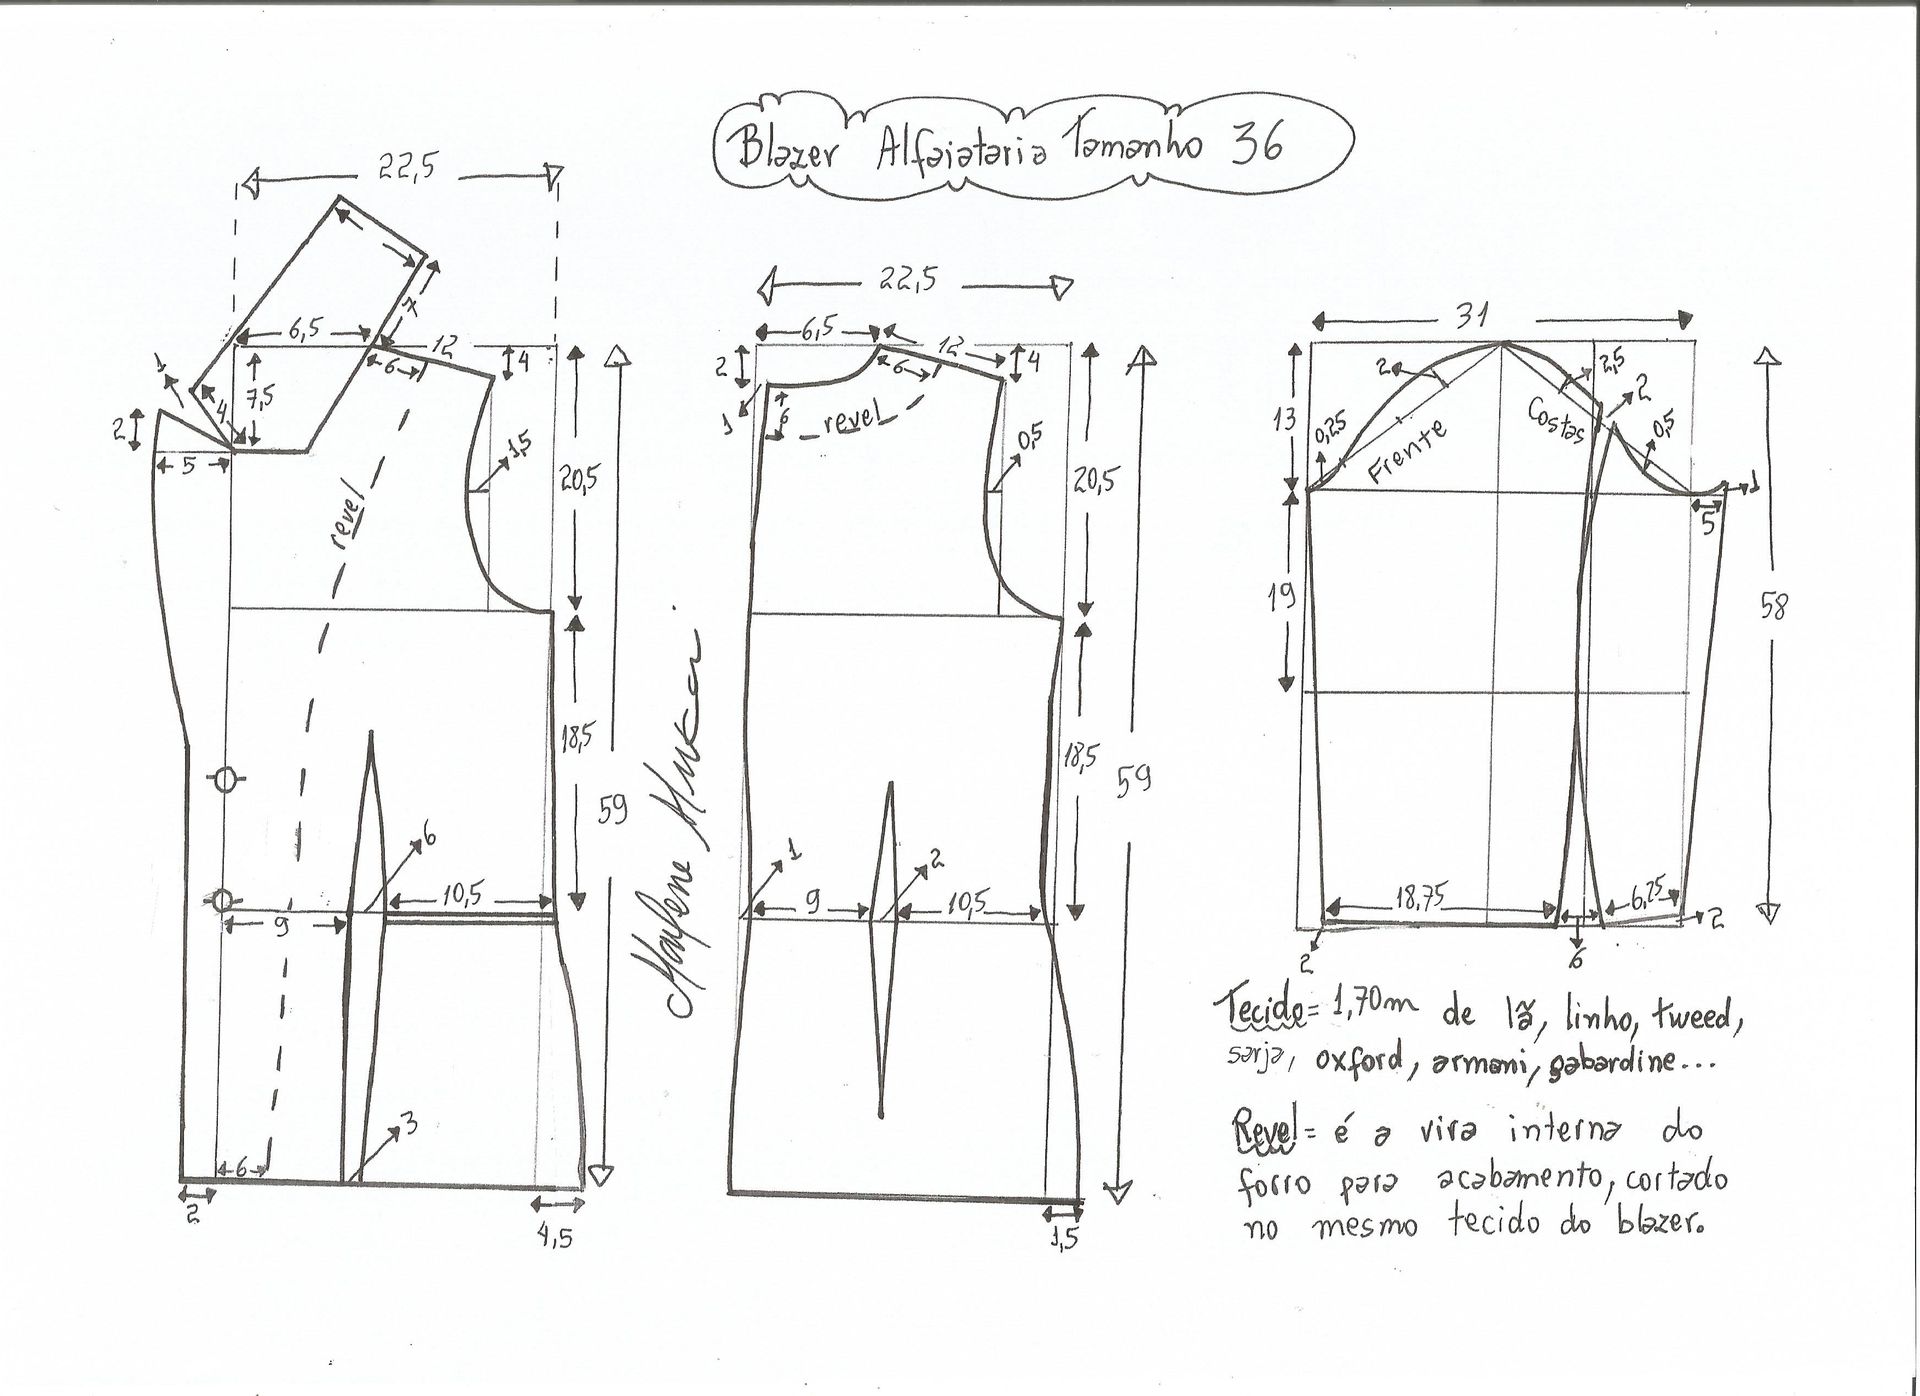 Blazer Alfaiataria Tamanho 36
22,5
6,5
12
x
6
4
1
4
7,5
2
5
revel
1,5
20,5
18,5
59
6
10,5
9
3
6
2
4,5
Marlene Mukai
22,5
6,5
12
2
6
4
1
6
revel
0,5
20,5
18,5
59
1
2
9
10,5
1,5
31
2
2,5
2
13
0,25
Frente
Costas
0,5
1
5
19
58
18,75
6,25
2
2
6
Tecido= 1,70m de lã, linho, tweed,
sarja, oxford, armani, gabardine...
Revel= é a vira interna do
forro para acabamento, cortado
no mesmo tecido do blazer.